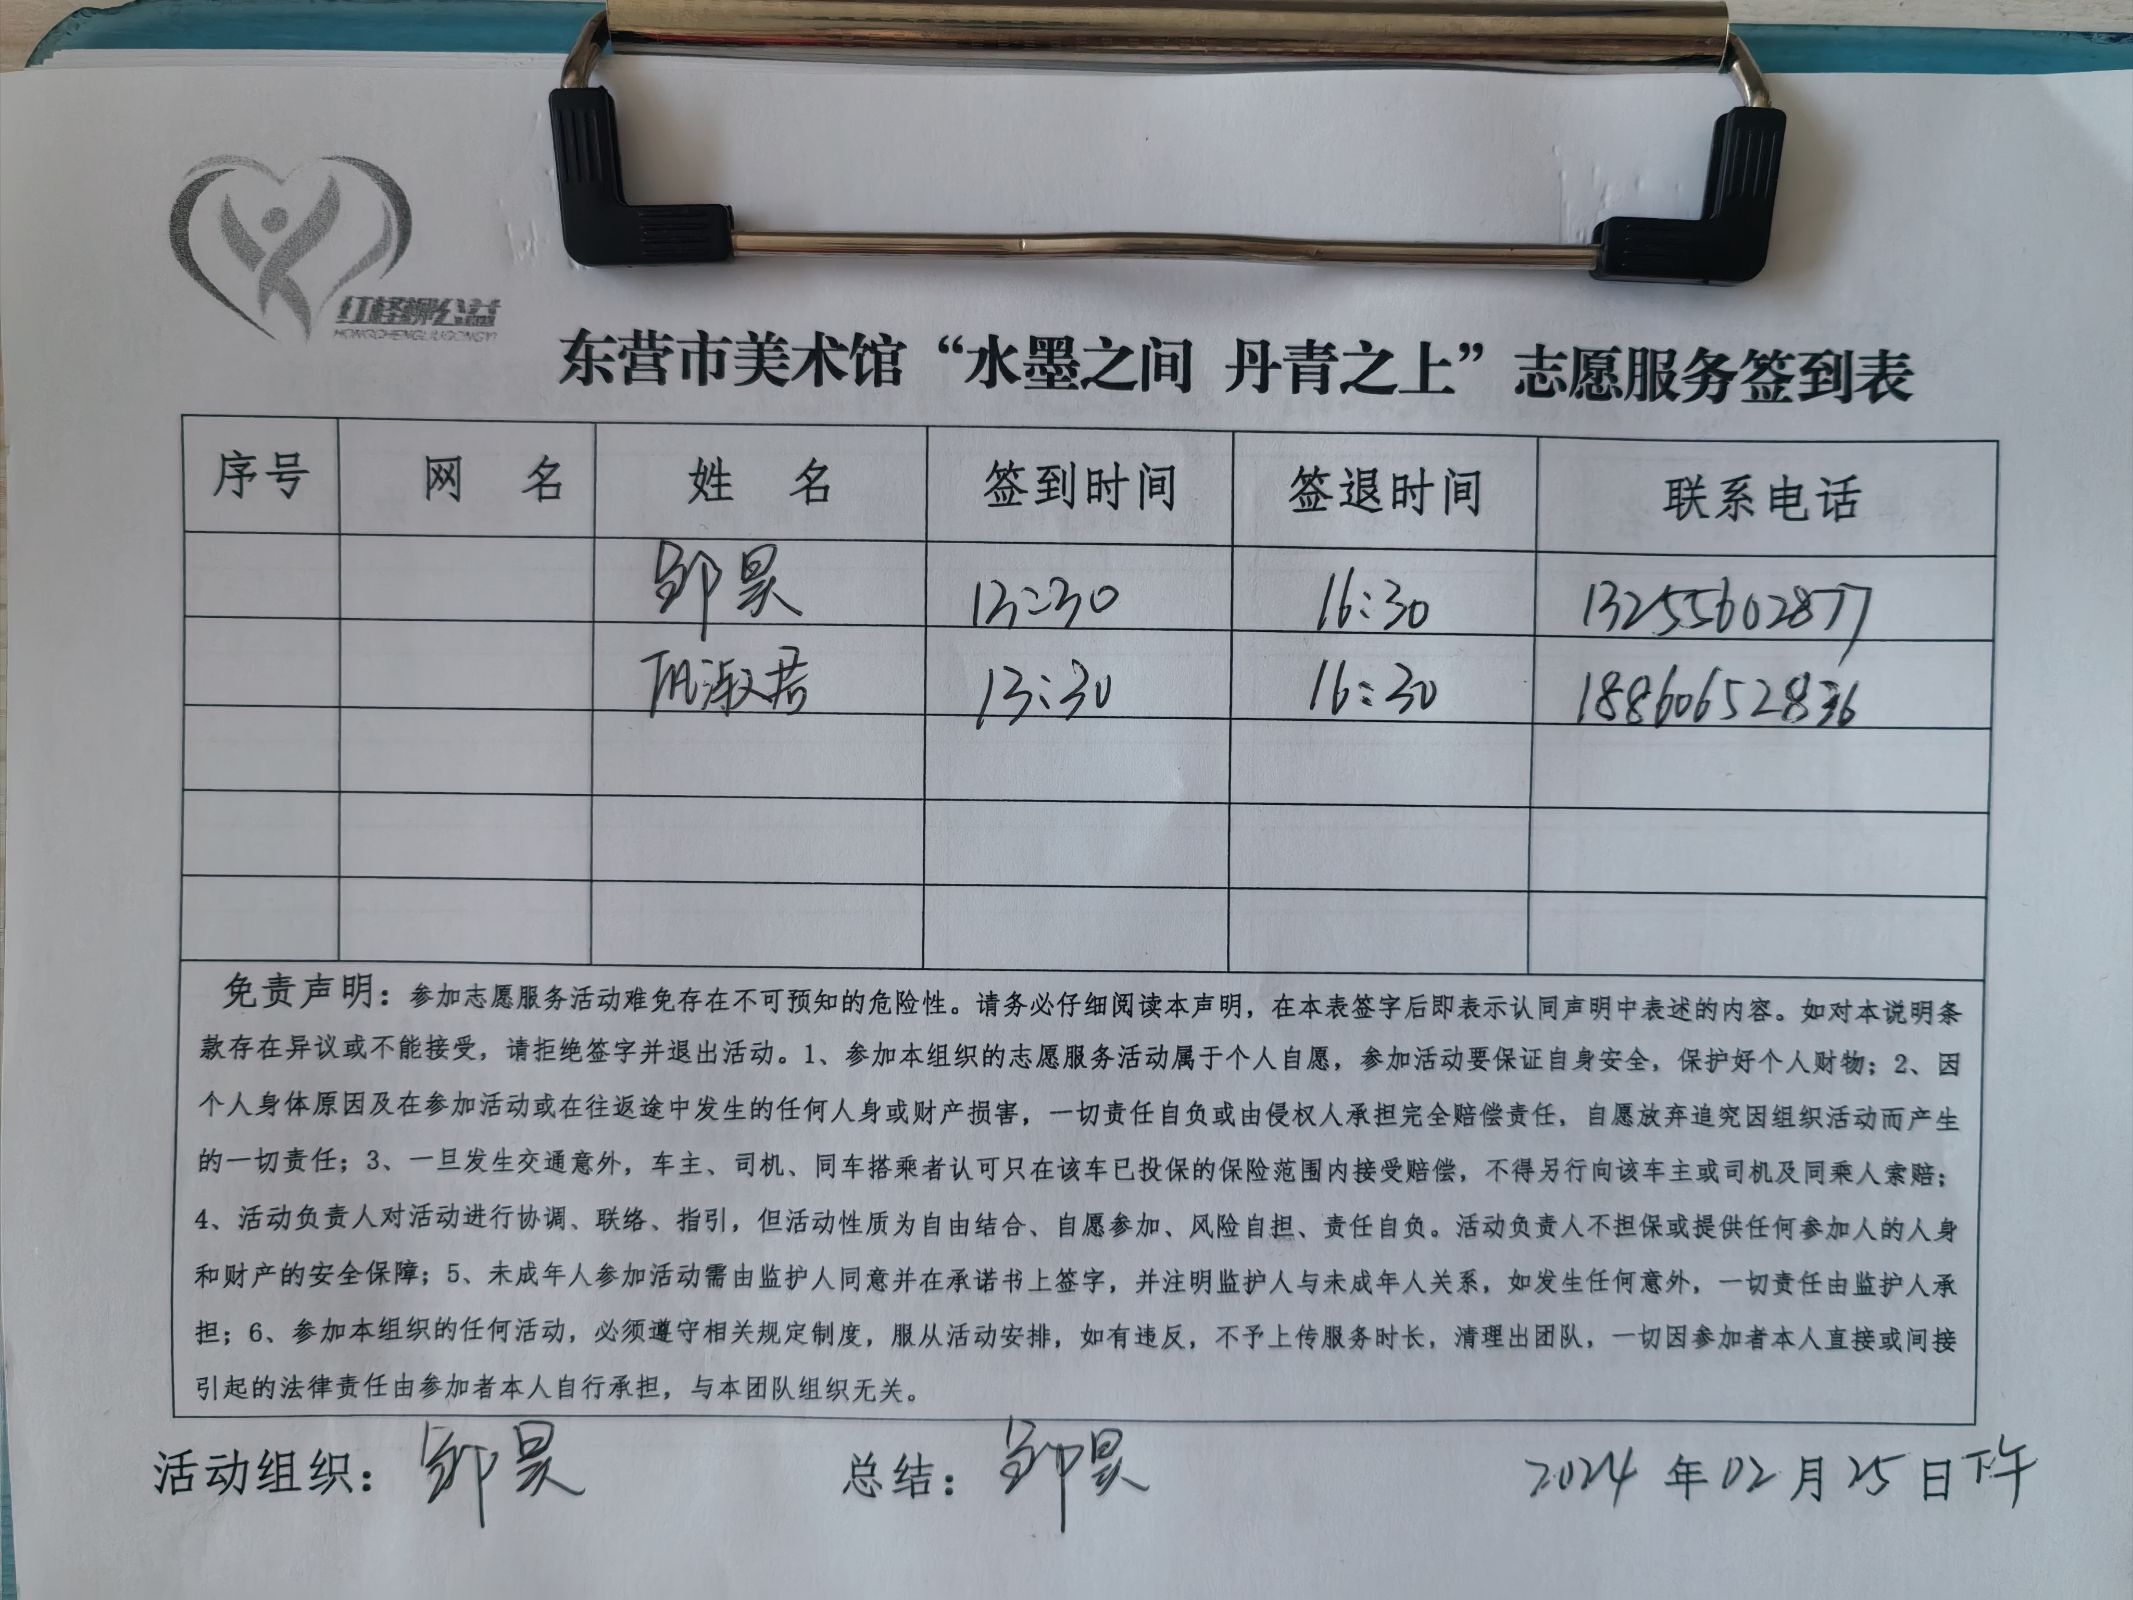 红柽柳公益
HONGCHENGLIUGONGYI
东营市美术馆“水墨之间 丹青之上”志愿服务签到表
序号 网 名 姓 名 签到时间 签退时间 联系电话
邹昊 13:30 16:30 13255602877
巩淑君 13:30 16:30 18860652836
免责声明：参加志愿服务活动难免存在不可预知的危险性。请务必仔细阅读本声明，在本表签字后即表示认同声明中表述的内容。如对本说明条
款存在异议或不能接受，请拒绝签字并退出活动。1、参加本组织的志愿服务活动属于个人自愿，参加活动要保证自身安全，保护好个人财物；2、因
个人身体原因及在参加活动或在往返途中发生的任何人身或财产损害，一切责任自负或由侵权人承担完全赔偿责任，自愿放弃追究因组织活动而产生
的一切责任；3、一旦发生交通意外，车主、司机、同车搭乘者认可只在该车已投保的保险范围内接受赔偿，不得另行向该车主或司机及同乘人索赔；
4、活动负责人对活动进行协调、联络、指引，但活动性质为自由结合、自愿参加、风险自担、责任自负。活动负责人不担保或提供任何参加人的人身
和财产的安全保障；5、未成年人参加活动需由监护人同意并在承诺书上签字，并注明监护人与未成年人关系，如发生任何意外，一切责任由监护人承
担；6、参加本组织的任何活动，必须遵守相关规定制度，服从活动安排，如有违反，不予上传服务时长，清理出团队，一切因参加者本人直接或间接
引起的法律责任由参加者本人自行承担，与本团队组织无关。
活动组织：邹昊 总结：邹昊 2024 年 02 月 25 日 下午